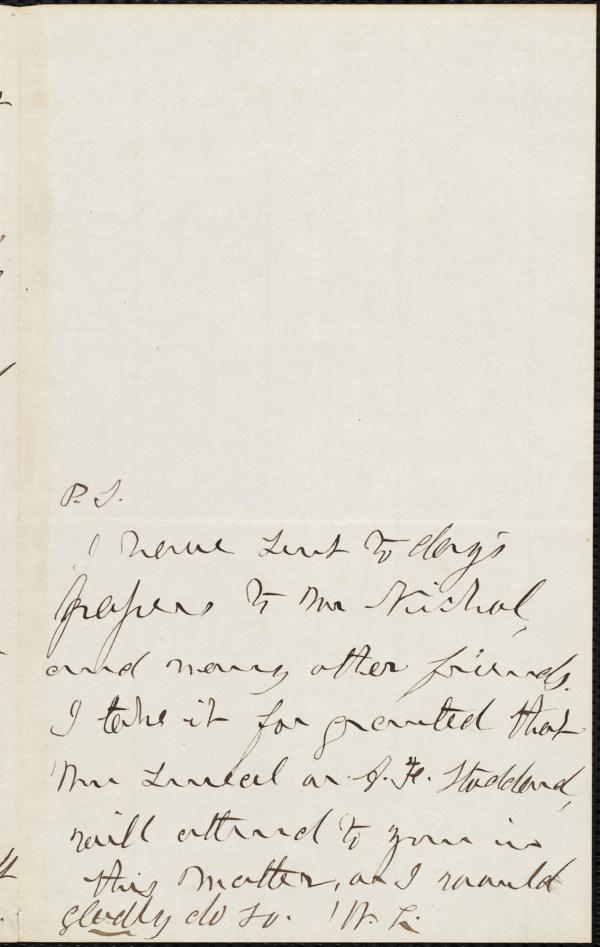 P. S.
I have sent to day's
papers to Mr Nichol,
and many other friends.
I take it for granted that
Mr Smeal or A. Fe. Stoddard,
will attend to you in
this matter, or I would
gladly do so. W. L.